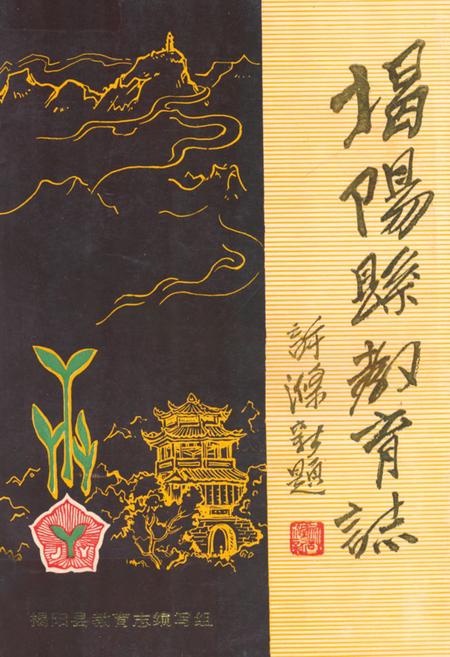 揭陽縣教育誌
許滌新題
揭阳县教育志编写组
JYJY